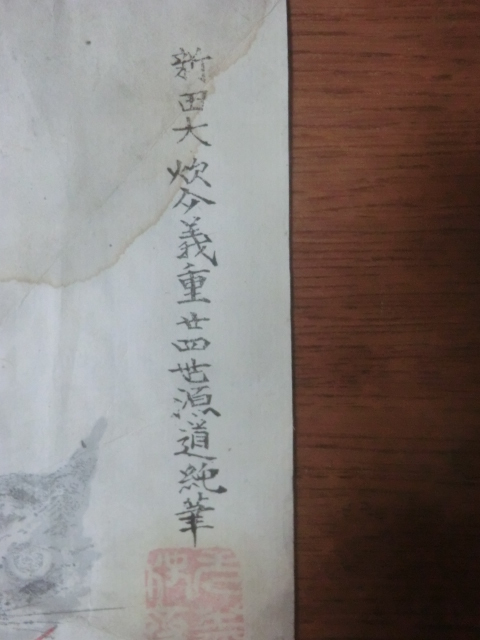 新田大炊介義重廿四世源道純筆